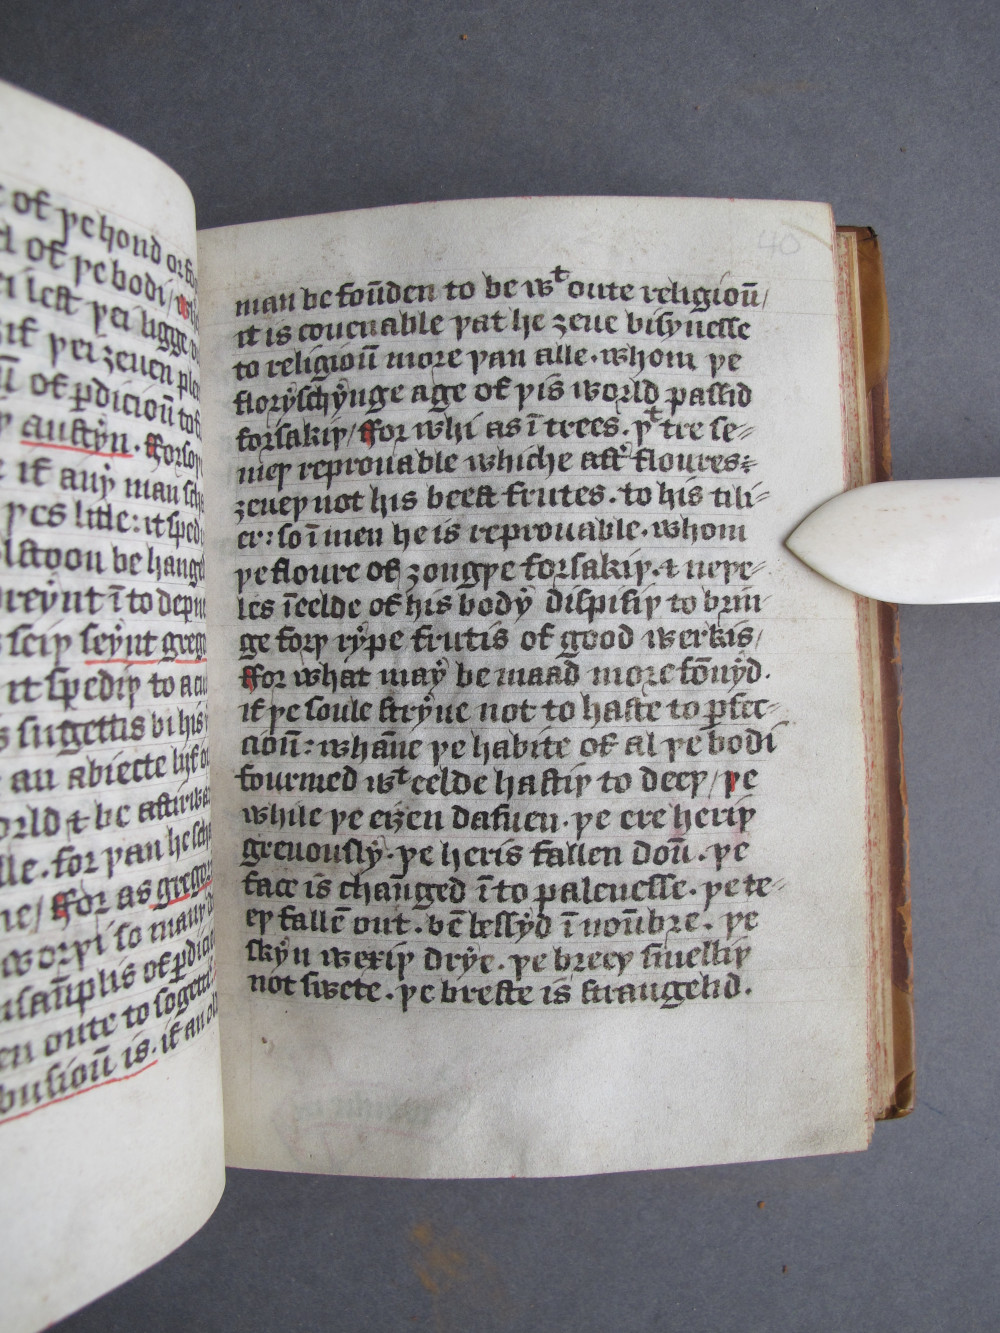 of þe hond or
of þe bodi / 
lest þei ligge
if þei ȝeuen
of ꝑdicioū to
austẏn . Forsoþ
if anẏ man
þes litle : it sped
be hange
dreẏnt ī to depn
seiþ seẏnt grego
it spediþ to a
sugettis bi his
an abiecte lijf
world & be
alle . for þan he
me / Ffor as gregor
worþi so manẏ
ensaūplis of ꝑdici
en oute to sogetti
busioū is . if an
40
man be foūden to be wᵗ oute religioū /
it is couenable þat he ȝeue bisynesse
to religioū more þan alle . whom þe
florẏschẏnge age of þis world passid
forsakiþ / Ffor whi as ī trees . þᵗ tre se=
meþ reprouable whiche aftˀ floures :
ȝeueþ not his beest frutes . to his tili=
er : so ī men he is reprouable . whom
þe floure of ȝongþe forsakiþ . & neþe=
les ī eelde of his bodẏ dispisiþ to brin=
ge forþ rẏpe frutis of good werkis /
Ffor what maẏ be maad more fōnẏd .
if þe soule strẏue not to haste to ꝑfec=
cioū : whāne þe habite of al þe bodi
fourmed wᵗ eelde hastiþ to deeþ / þe
while þe eiȝen dasuen . þe ere heriþ
greuouslẏ . þe heris fallen doū . þe
face is chaūged ī to palenesse . þe te=
eþ fallē out . bē lessẏd ī noūbre . þe
skẏn wexiþ drẏe . þe breeþ smelliþ
not swete . þe breste is strangelid .